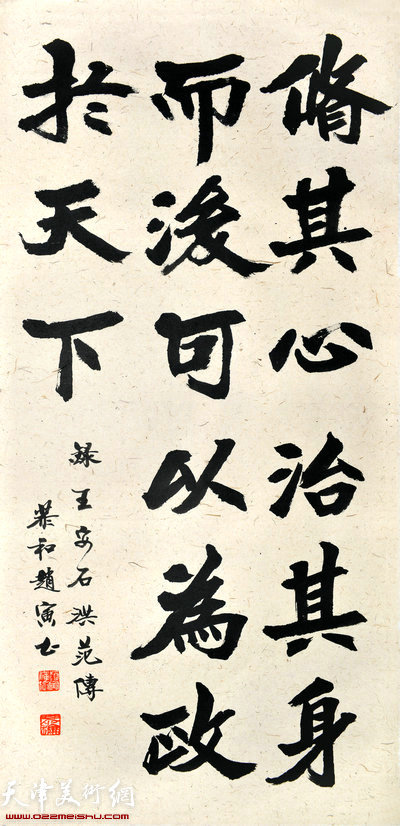 脩其心治其身
而後可以為政
於天下
録王安石洪范傳
恭和趙寅書
天津美術網
www.022meishu.com